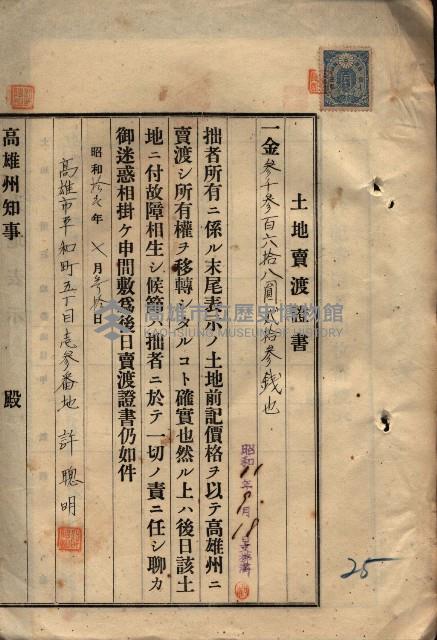 土地賣渡證書
一金參千參百六拾八圓貳拾參錢也
拙者所有ニ係ル末尾表示ノ土地前記價格ヲ以テ高雄州ニ
賣渡シ所有權ヲ移轉シタルコト確實也然ル上ハ後日該土
地ニ付故障相生シ候節ハ拙者ニ於テ一切ノ責ニ任シ聊カ
御迷惑相掛ケ申間敷爲後日賣渡證書仍如件
昭和拾 年 月 日
高雄市平和町五丁目壹參番地 許聰明
高雄州知事 殿
昭和11年9月18日
25
高雄市立歷史博物館
KAOHSIUNG MUSEUM OF HISTORY